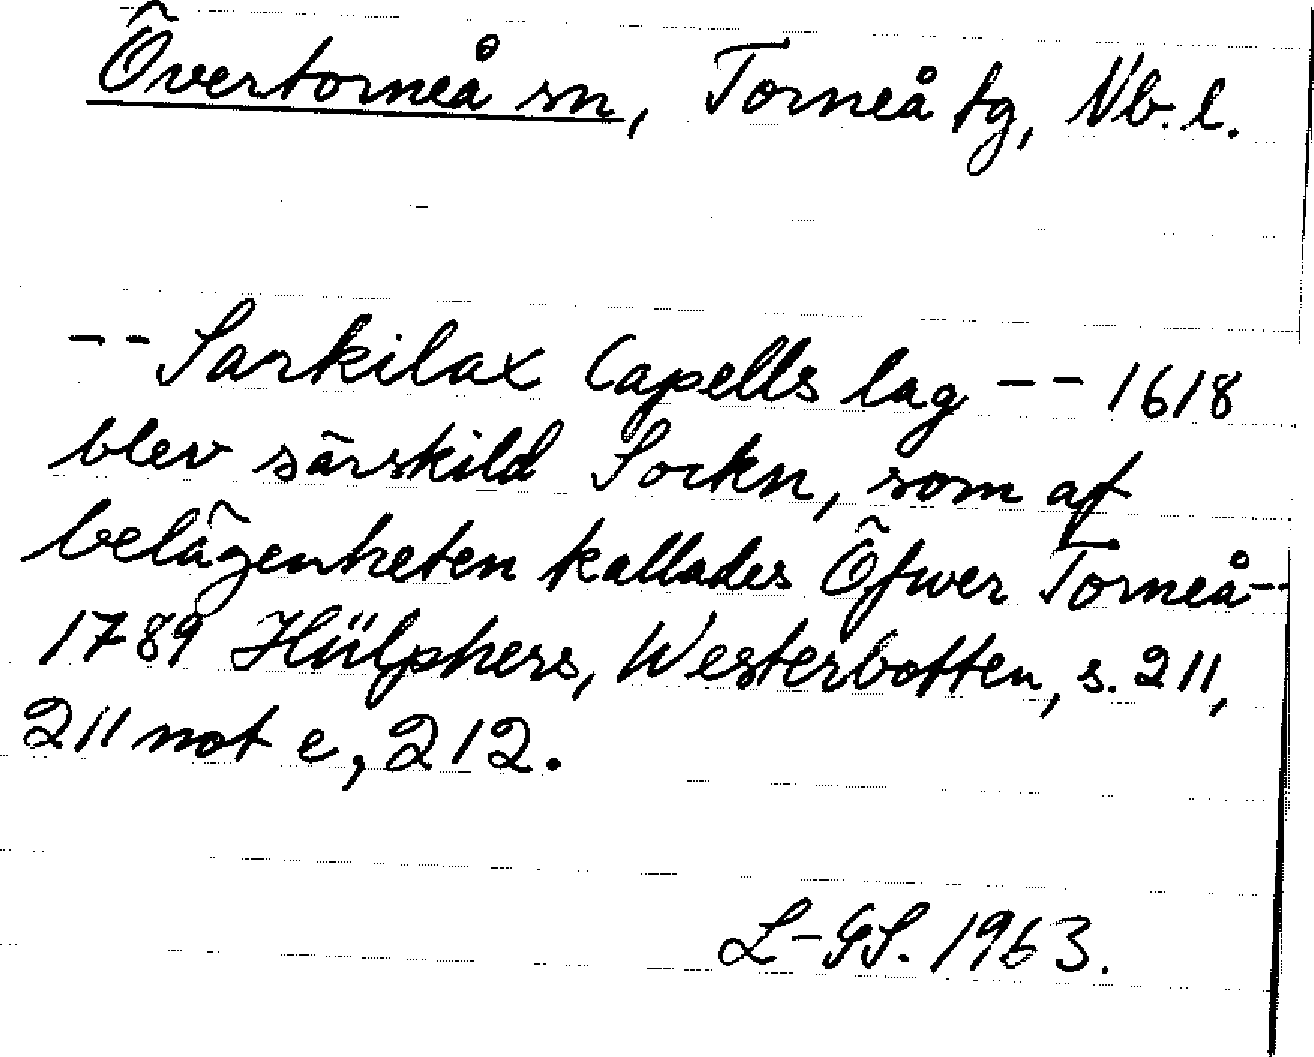 Övertorneå sn, Torneå tg, Nb. l.
-- Sarkilax Capells lag -- 1618
blev särskild Sockn, som af
belägenheten kallades Öfwer Torneå--
1789 Hülphers, Westerbotten, s. 211,
211 not e, 212.
L-GS. 1963.